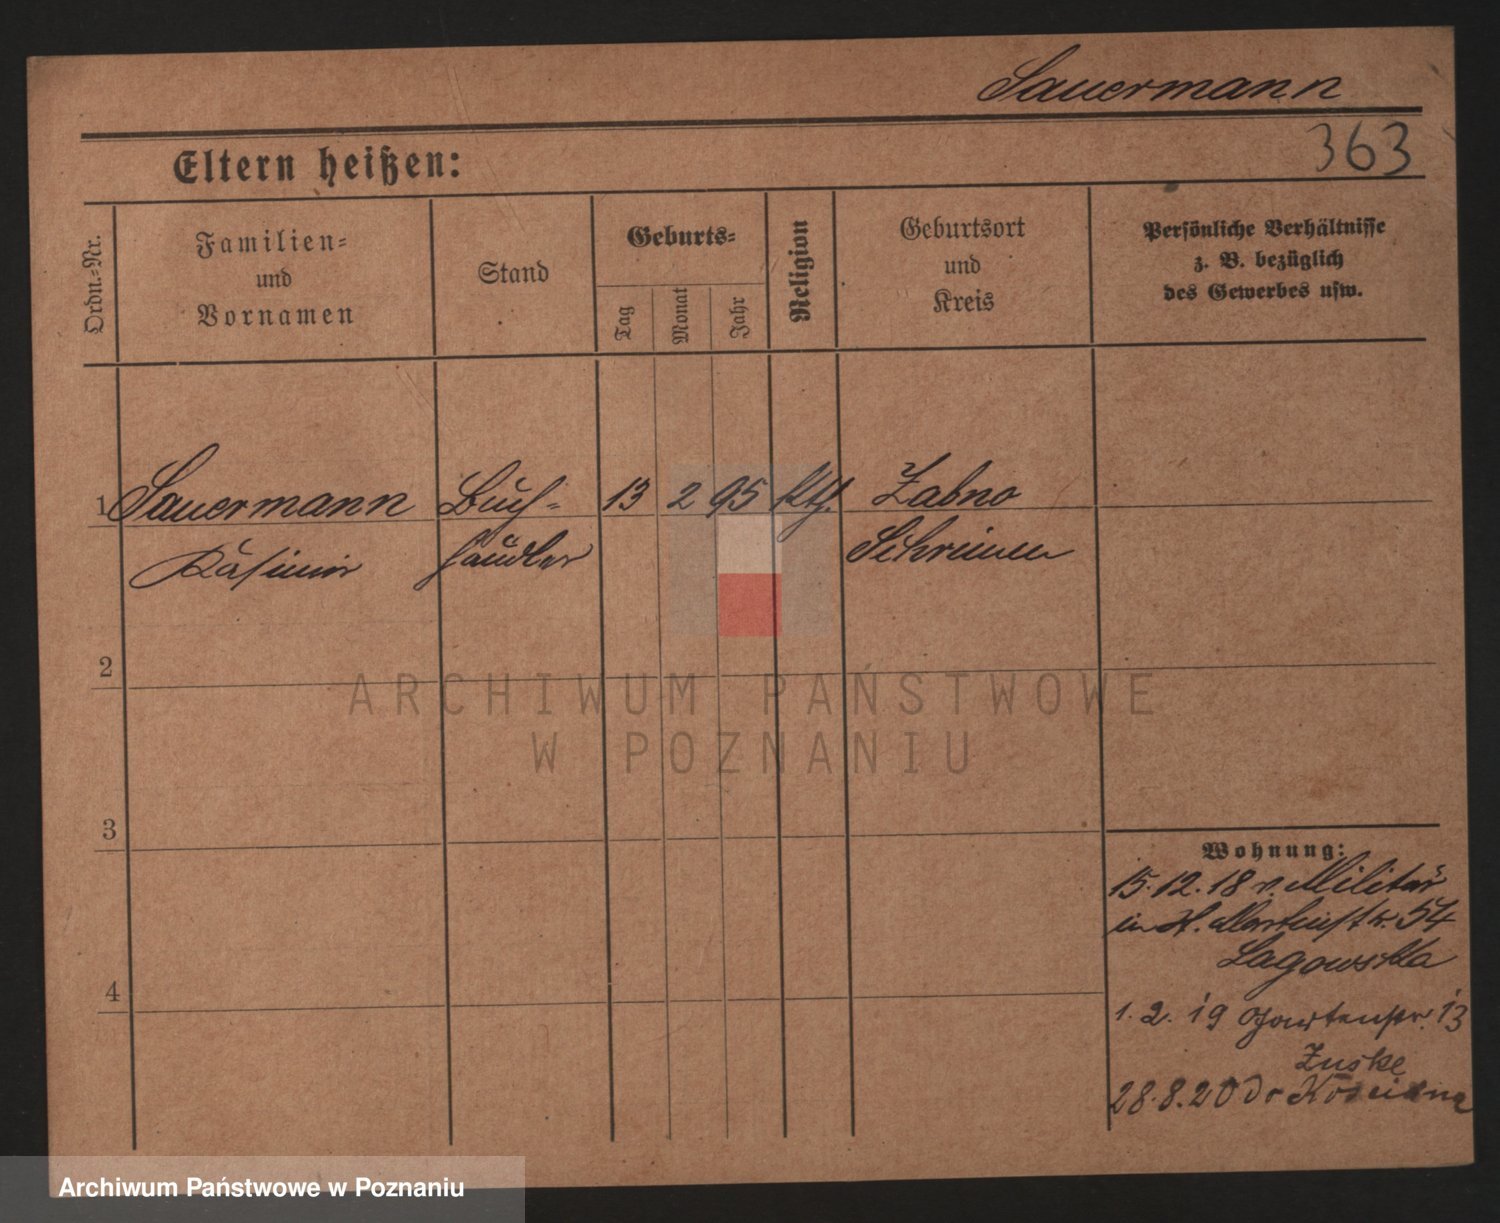 Sauermann
363
Eltern heißen:
Ordn.-Nr.
Familien-
und
Vornamen
Stand
Geburts-
Tag
Monat
Jahr
Religion
Geburtsort
und
Kreis
Persönliche Verhältnisse
z. B. bezüglich
des Gewerbes usw.
1 Sauermann Buch- 13 2 95 kth. Zabno
Kasimir händler Schrimm
2
3
4
ARCHIWUM PAŃSTWOWE
W POZNANIU
Wohnung:
15.12.18 v. Militär
in H. Martinstr. 54
Lagowska
1.2.19 Gartenstr. 13
Zuske
28.8.20 do Kościana
Archiwum Państwowe w Poznaniu